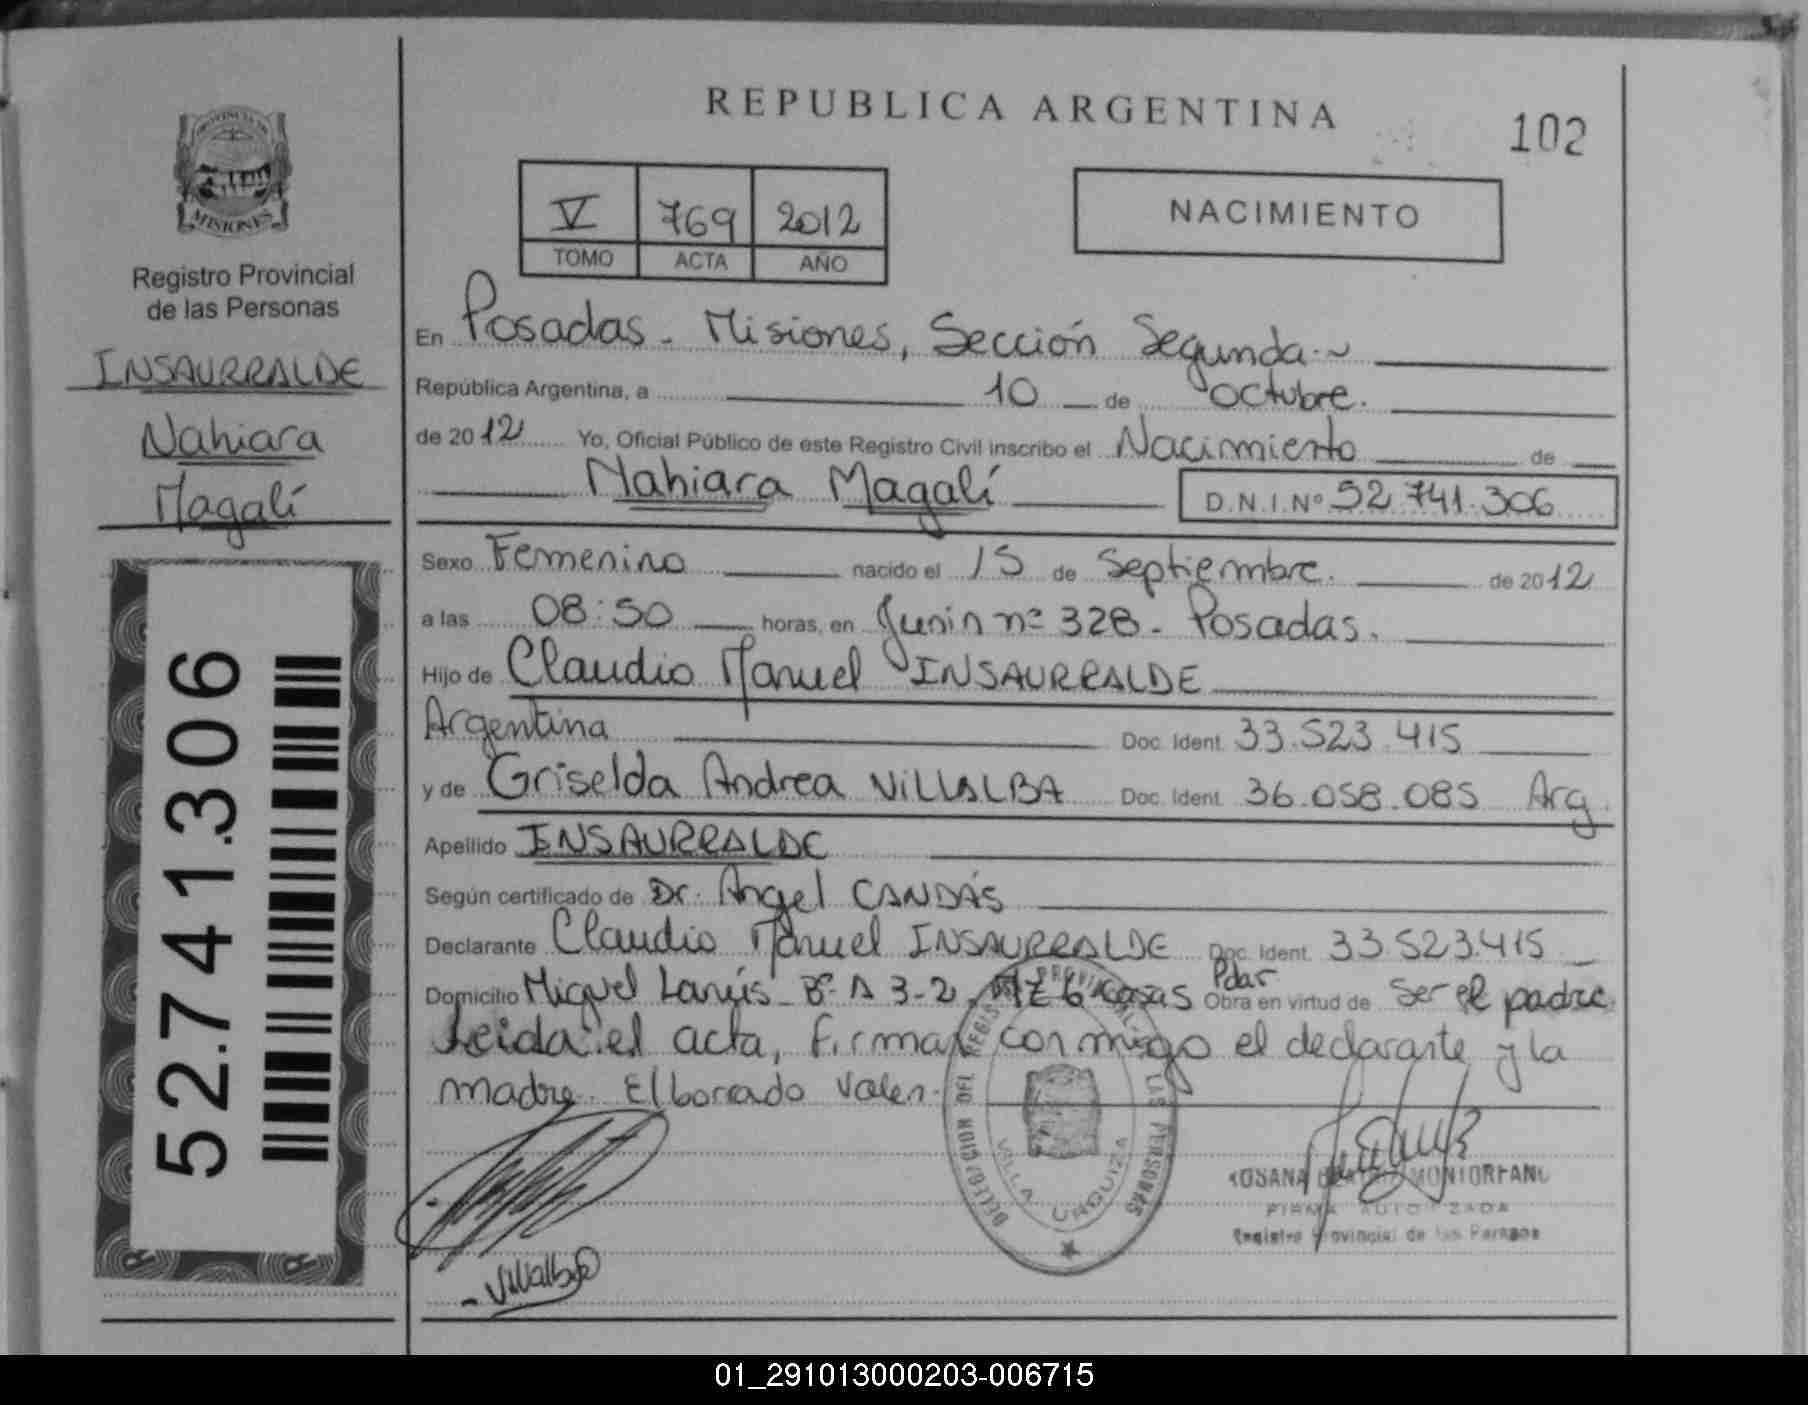 REPUBLICA ARGENTINA
102
PROVINCIA DE
MISIONES
Registro Provincial
de las Personas
INSAURRALDE
Nahiara
Magalí
52.741.306
V 769 2012
TOMO ACTA AÑO
NACIMIENTO
En Posadas - Misiones, Sección Segunda.~
República Argentina, a 10 de octubre.
de 2012 Yo, Oficial Público de este Registro Civil inscribo el Nacimiento de
Nahiara Magalí D.N.I.Nº 52.741.306
Sexo Femenino nacido el 15 de Septiembre. de 2012
a las 08:50 horas, en Junin nº 328 - Posadas.
Hijo de Claudio Manuel INSAURRALDE
Argentina Doc. Ident. 33.523.415
y de Griselda Andrea VILLALBA Doc. Ident. 36.058.085 Arg.
Apellido INSAURRALDE
Según certificado de Dr. Angel CANDÁS
Declarante Claudio Manuel INSAURRALDE Doc. Ident. 33.523.415
Domicilio Miguel Lanús - Bº A 3-2, MZ 6 casas Pdas Obra en virtud de Ser el padre.
Leida el acta, firman conmigo el declarante y la
madre. El borrado Valen.
DELEGACION DEL REGISTRO PROVINCIAL DE LAS PERSONAS
VILLA URQUIZA
Villalba
ROSANA BEATRIZ MONTORFANO
FIRMA AUTORIZADA
Registro Provincial de las Personas
01_291013000203-006715